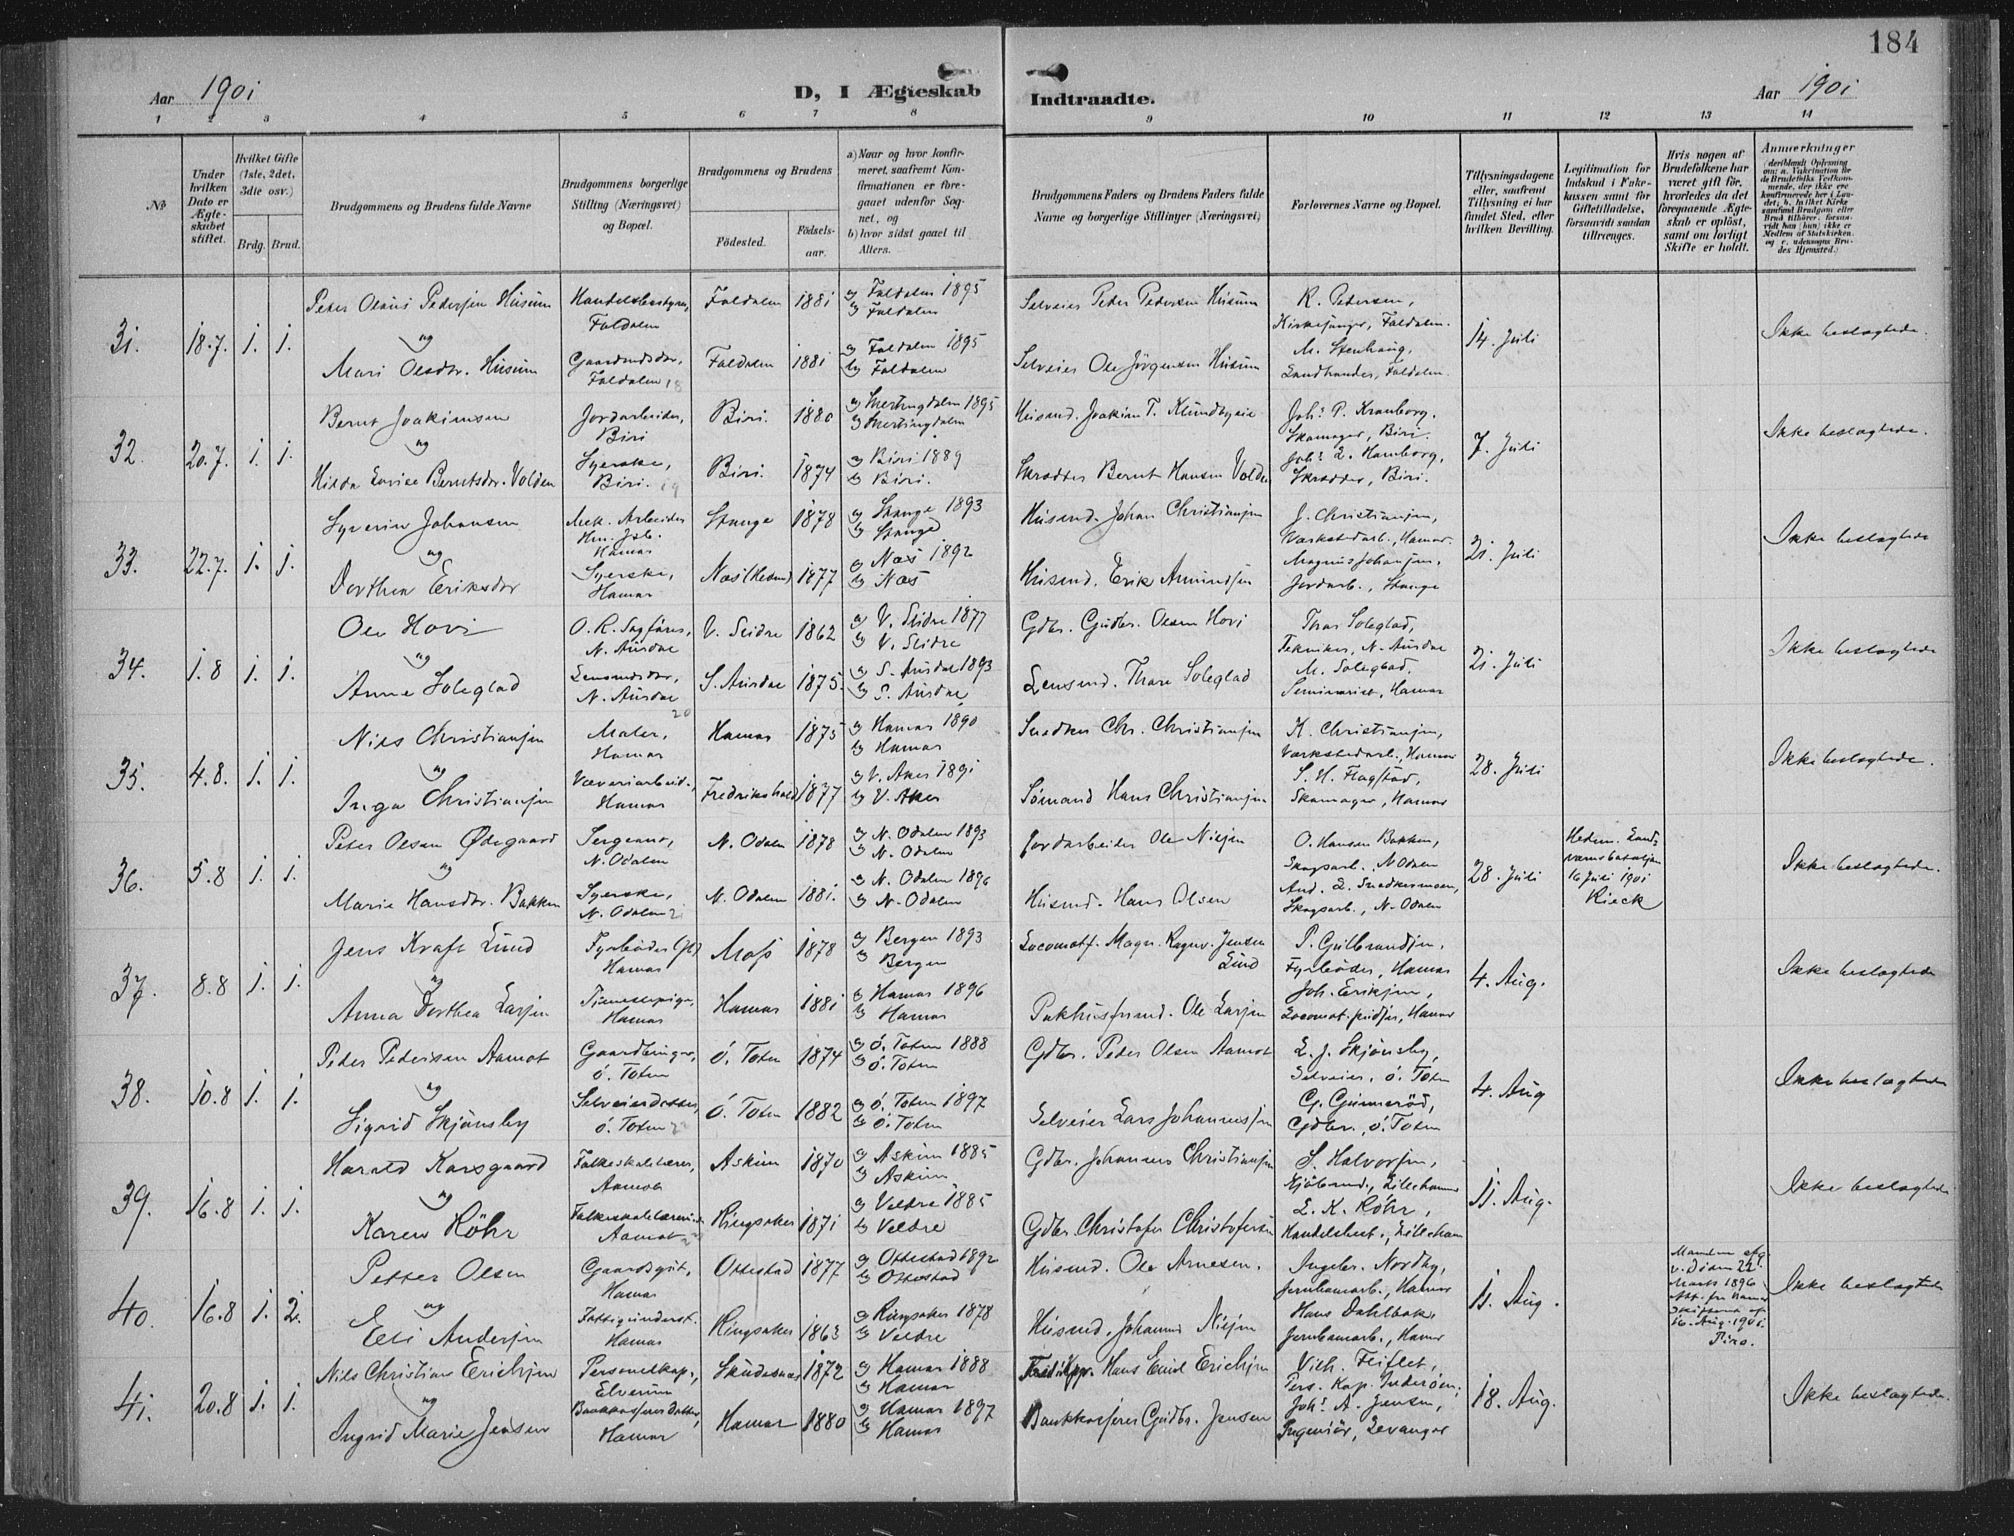 184
Aar 1901
D, I Ægteskab
Indtraadte.
Aar 1901
1 2 3 4 5 6 7 8 9 10 11 12 13 14
No
Under hvilken Dato er Ægteskabet stiftet.
Hvilket Gifte (1ste, 2det, 3die osv.)
Brdg. Brud.
Brudgommens og Brudens fulde Navne
Brudgommens borgerlige Stilling (Næringsvei) og Bopæl.
Brudgommens og Brudens
Fødested.
Fødselsaar.
a) Naar og hvor konfirmeret, saafremt Konfirmationen er foregaaet udenfor Sognet, og
b) hvor sidst gaaet til Alters.
Brudgommens Faders og Brudens Faders fulde Navne og borgerlige Stillinger (Næringsvei)
Forlovernes Navne og Bopæl.
Tillysningsdagene eller, saafremt Tillysning ei har fundet Sted, efter hvilken Bevilling.
Legitimation for Indskud i Enkekassen samt for Giftetilladelse, forsaavidt saadan tiltrænges.
Hvis nogen af Brudefolkene har været gift før, hvorledes da det foregaaende Ægteskab er opløst, samt om lovligt Skifte er holdt.
Anmerkninger
31. 18.7. 1. 1.
Peter Olaus Pedersen Husum
og
Mari Olsdtr. Husum
Handelsbestyrer, Foldalen
Gaardmdsdtr, Foldalen 18
Foldalen 1881
Foldalen 1881
a) Foldalen 1895
b) Foldalen
a) Foldalen 1895
b) Foldalen
Selveier Peder Pedersen Husum
Selveier Ole Jörgensen Husum
R. Pedersen,
Kirkesanger, Foldalen.
M. Stenhaug,
Landhandler, Foldalen.
14. Juli
Ikke beslægtede.
32. 20.7. 1. 1.
Bernt Joakimsen
og
Hilda Lovise Berntsdtr. Volden
Jordarbeider, Biri
Syerske, Biri. 19
Biri. 1880
Biri. 1874
a) Snertingdalen 1895
b) Snertingdalen
a) Biri 1889
b) Biri.
Husmd. Joakim T. Klundbyeie
Skrædder Bernt Hansen Volden
Johs. P. Kranborg,
Skomager, Biri.
Johs. L. Hamborg,
Skrædder, Biri.
7. Juli
Ikke beslægtede.
33. 22.7. 1. 1.
Syverin Johansen
og
Dorthea Eriksdtr
Mek. Arbeider
Hm. Jstb.
Hamar
Syerske, Hamar
Stange 1878
Næs (Hedm) 1877
a) Stange 1893
b) Stange
a) Næs 1892
b) Næs
Husmd. Johan Christiansen
Husmd. Erik Amundsen
J. Christiansen,
Værkstedarb., Hamar.
Magnus Johansen,
Jordarb., Stange
21. Juli
Ikke beslægtede
34. 1.8 1. 1.
Ole Hovi
og
Anne Soleglad
O. R. Sagfører, N. Aurdal
Lensmdsdtr, N. Aurdal 20
V. Slidre 1862
S. Aurdal 1875.
a) V. Slidre 1877
b) V. Slidre
a) S. Aurdal 1893
b) S. Aurdal
Gdbr. Gudbr. Olsen Hovi
Lensmd. Thore Soleglad
Thor Soleglad,
Tekniker, N. Aurdal
M. Soleglad,
Seminarist, Hamar
21. Juli
Ikke beslægtede
35. 4.8. 1. 1.
Nils Christiansen
og
Inga Christiansen
Maler, Hamar
Væveriarbeid., Hamar
Hamar 1875
Fredrikshald 1877
a) Hamar 1890
b) Hamar
a) V. Aker 1891
b) V. Aker
Snedker Chr. Christiansen
Sömand Hans Christiansen
K. Christiansen,
Værkstedarb., Hamar
S. H. Flagstad,
Skomager, Hamar
28. Juli
Ikke beslægtede.
36. 5.8 1. 1.
Peter Olsen Ødegaard
og
Marie Hansdtr. Bakken
Sergeant, N. Odalen
Syerske, N. Odalen 21
N. Odalen 1878
N. Odalen 1881.
a) N. Odalen 1893
b) N. Odalen
a) N. Odalen 1896
b) N. Odalen
Jordarbeider Ole Nilsen
Husmd. Hans Olsen
O. Hansen Bakken,
Skogsarb., N Odalen
And. L. Snedkermoen,
Skogsarb., N. Odalen
28. Juli
Hedem. Landværnsbataljon 16 Juli 1901
Kieck
Ikke beslægtede.
37. 8.8 1. 1.
Jens Kraft Lund
og
Anna Dorthea Larsen
Fyrbøder, Hamar
Tjenestepige, Hamar
Moss 1878
Hamar 1881
a) Bergen 1893
b) Bergen
a) Hamar 1896
b) Hamar
Locomotf. Magn. Ragnv. Jensen Lund
Pakhusformd. Ole Larsen
P. Gulbrandsen,
Fyrbøder, Hamar
Joh. Eriksen,
Locomot.pudser, Hamar
4. Aug.
Ikke beslægtede
38. 10.8 1. 1.
Peder Pedersen Aamot
og
Sigrid Skjønsby
Gaardbruger, Ö. Toten
Selveierdatter, Ö. Toten 22
Ö. Toten 1874
Ö. Toten 1882
a) Ö. Toten 1888
b) Ö. Toten
a) Ö. Toten 1897
b) Ö. Toten
Gdbr. Peder Olsen Aamot
Selveier Lars Johannessen
L. J. Skjönsby,
Selveier, Ö. Toten
G. Gunneröd,
Gdbr., Ö. Toten
4. Aug
Ikke beslægtede
39. 16.8 1. 1.
Harald Korsgaard
og
Karen Röhr
Folkeskolelærer, Aamot
Folkeskolelærerinde, Aamot 23
Askim 1870
Ringsaker 1871
a) Askim 1885
b) Askim
a) Veldre 1885
b) Veldre
Gdbr. Johannes Christiansen
Gdbr. Christofer Christofersen
S. Halvorsen,
Kjöbmd., Lillehammer
L. K. Röhr,
Handelsbest., Lilleham
11. Aug.
Ikke beslægtede.
40. 16.8 1. 2.
Petter Olsen
og
Eli Andersen
Gaardsgut, Hamar
Fattigunderst., Hamar
Ottestad 1877
Ringsaker 1863
a) Ottestad 1892
b) Ottestad
a) Ringsaker 1878
b) Veldre
Husmd. Ole Arnesen.
Husmd. Johannes Nilsen
Ingebr. Nordby,
Jernbanearb., Hamar
Hans Dahlbak,
Jernbanearb., Hamar
11. Aug.
Manden afg. v. Döden 22 Marts 1896 Att. fra Hamar Skifteret af 16. Aug. 1901.
Piro.
Ikke beslægtede
41. 20.8 1. 1.
Nils Christian Erichsen
og
Ingrid Marie Jensen
Personelkap., Elverum
Bankkasserers Datter, Hamar
Skudesnæs 1872
Hamar 1880
a) Hamar 1888
b) Hamar
a) Hamar 1897
b) Hamar
Hans Emil Erichsen
Bankkasserer Gudbr. Jensen
Vilh. Feiflet,
Pers. Kap. Inderöen;
Johs. A. Jensen,
Ingeniör, Levanger
18. Aug.
Ikke beslægtede.